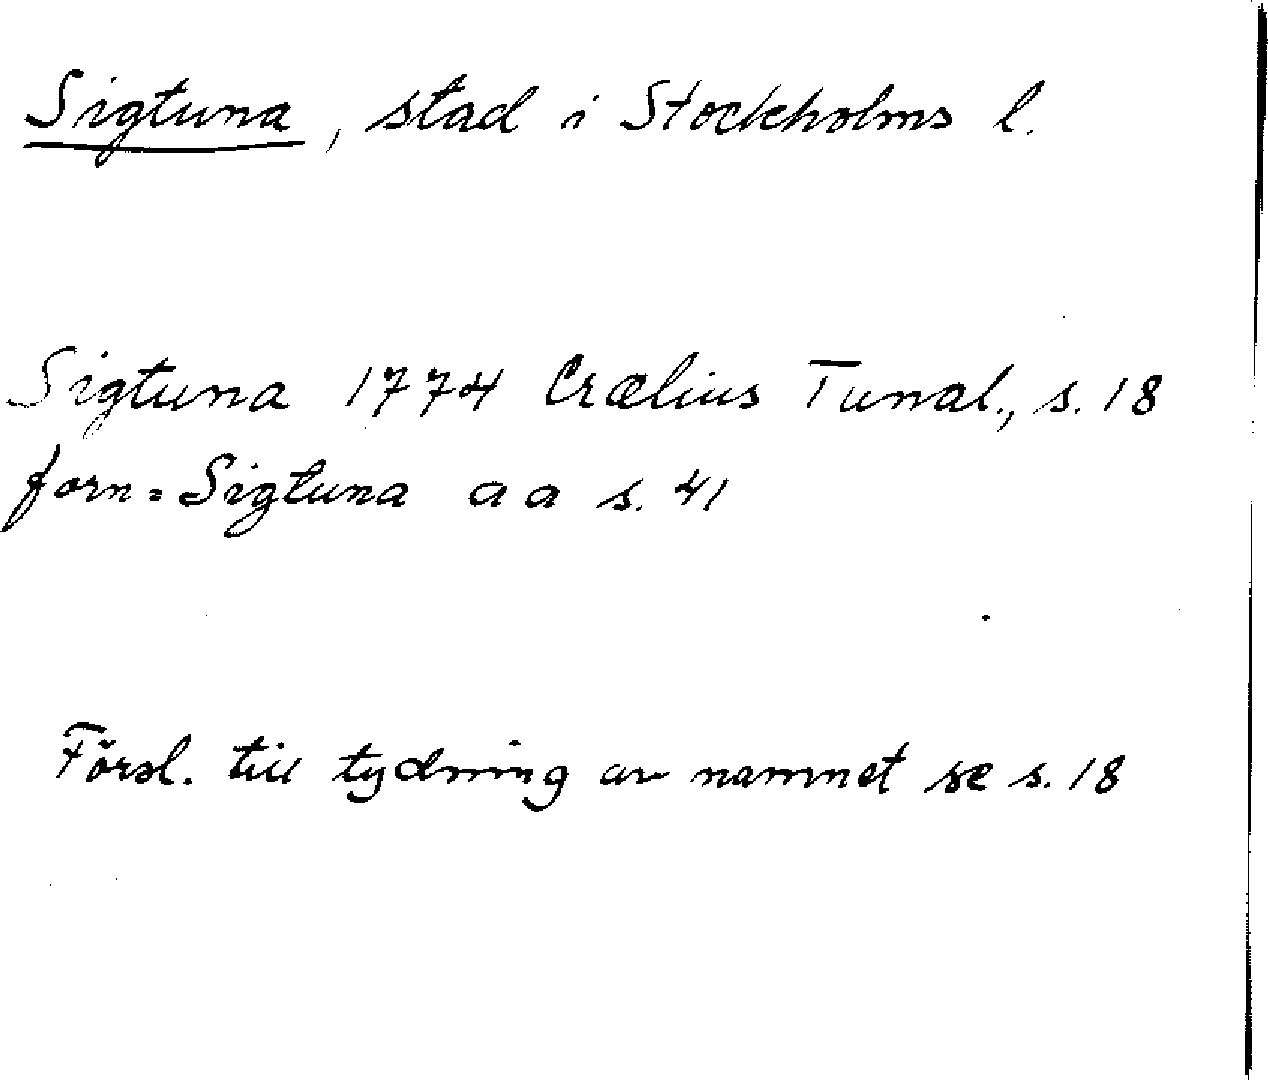 Sigtuna, stad i Stockholms l.
Sigtuna 1774 Crælius Tunal., s. 18
forn=Sigtuna a a s. 41
Försl. till tydning av namnet se s. 18